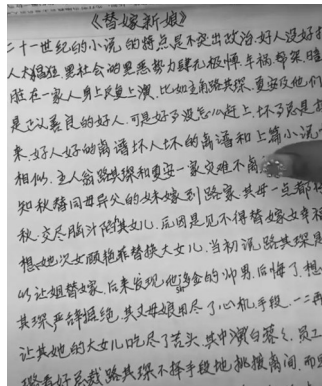 《替嫁新娘》
二十一世纪的小说的特点是不突出政治.好人没好
人太猖狂.黑社会的黑恶势力肆无极惮.车祸.绑架
脏在一家人身上反复上演.比如主角路其琛.夏安及他们
是正义善良的好人.可是好多没怎么赶上.坏多总是
来.好人好的离谱坏人坏的离谱和上篇小说
相似.主人翁路其琛和夏安一家灾难不离
知秋替同母异父的妹嫁到路家.其母一点都
秋.交尽脑汁陷其女儿.原因是见不得替嫁女幸
想她次女顾艳菲替换大女儿.当初说路其琛是
以让姐替嫁.后来发现他多金的帅男.后悔了.想
其琛严辞拒绝.其丈母娘用尽了心机手段.一二再
让其她的大女儿吃尽了苦头.其中演白蓉.员工
总裁路其琛不择手段地.挑拨离间.而